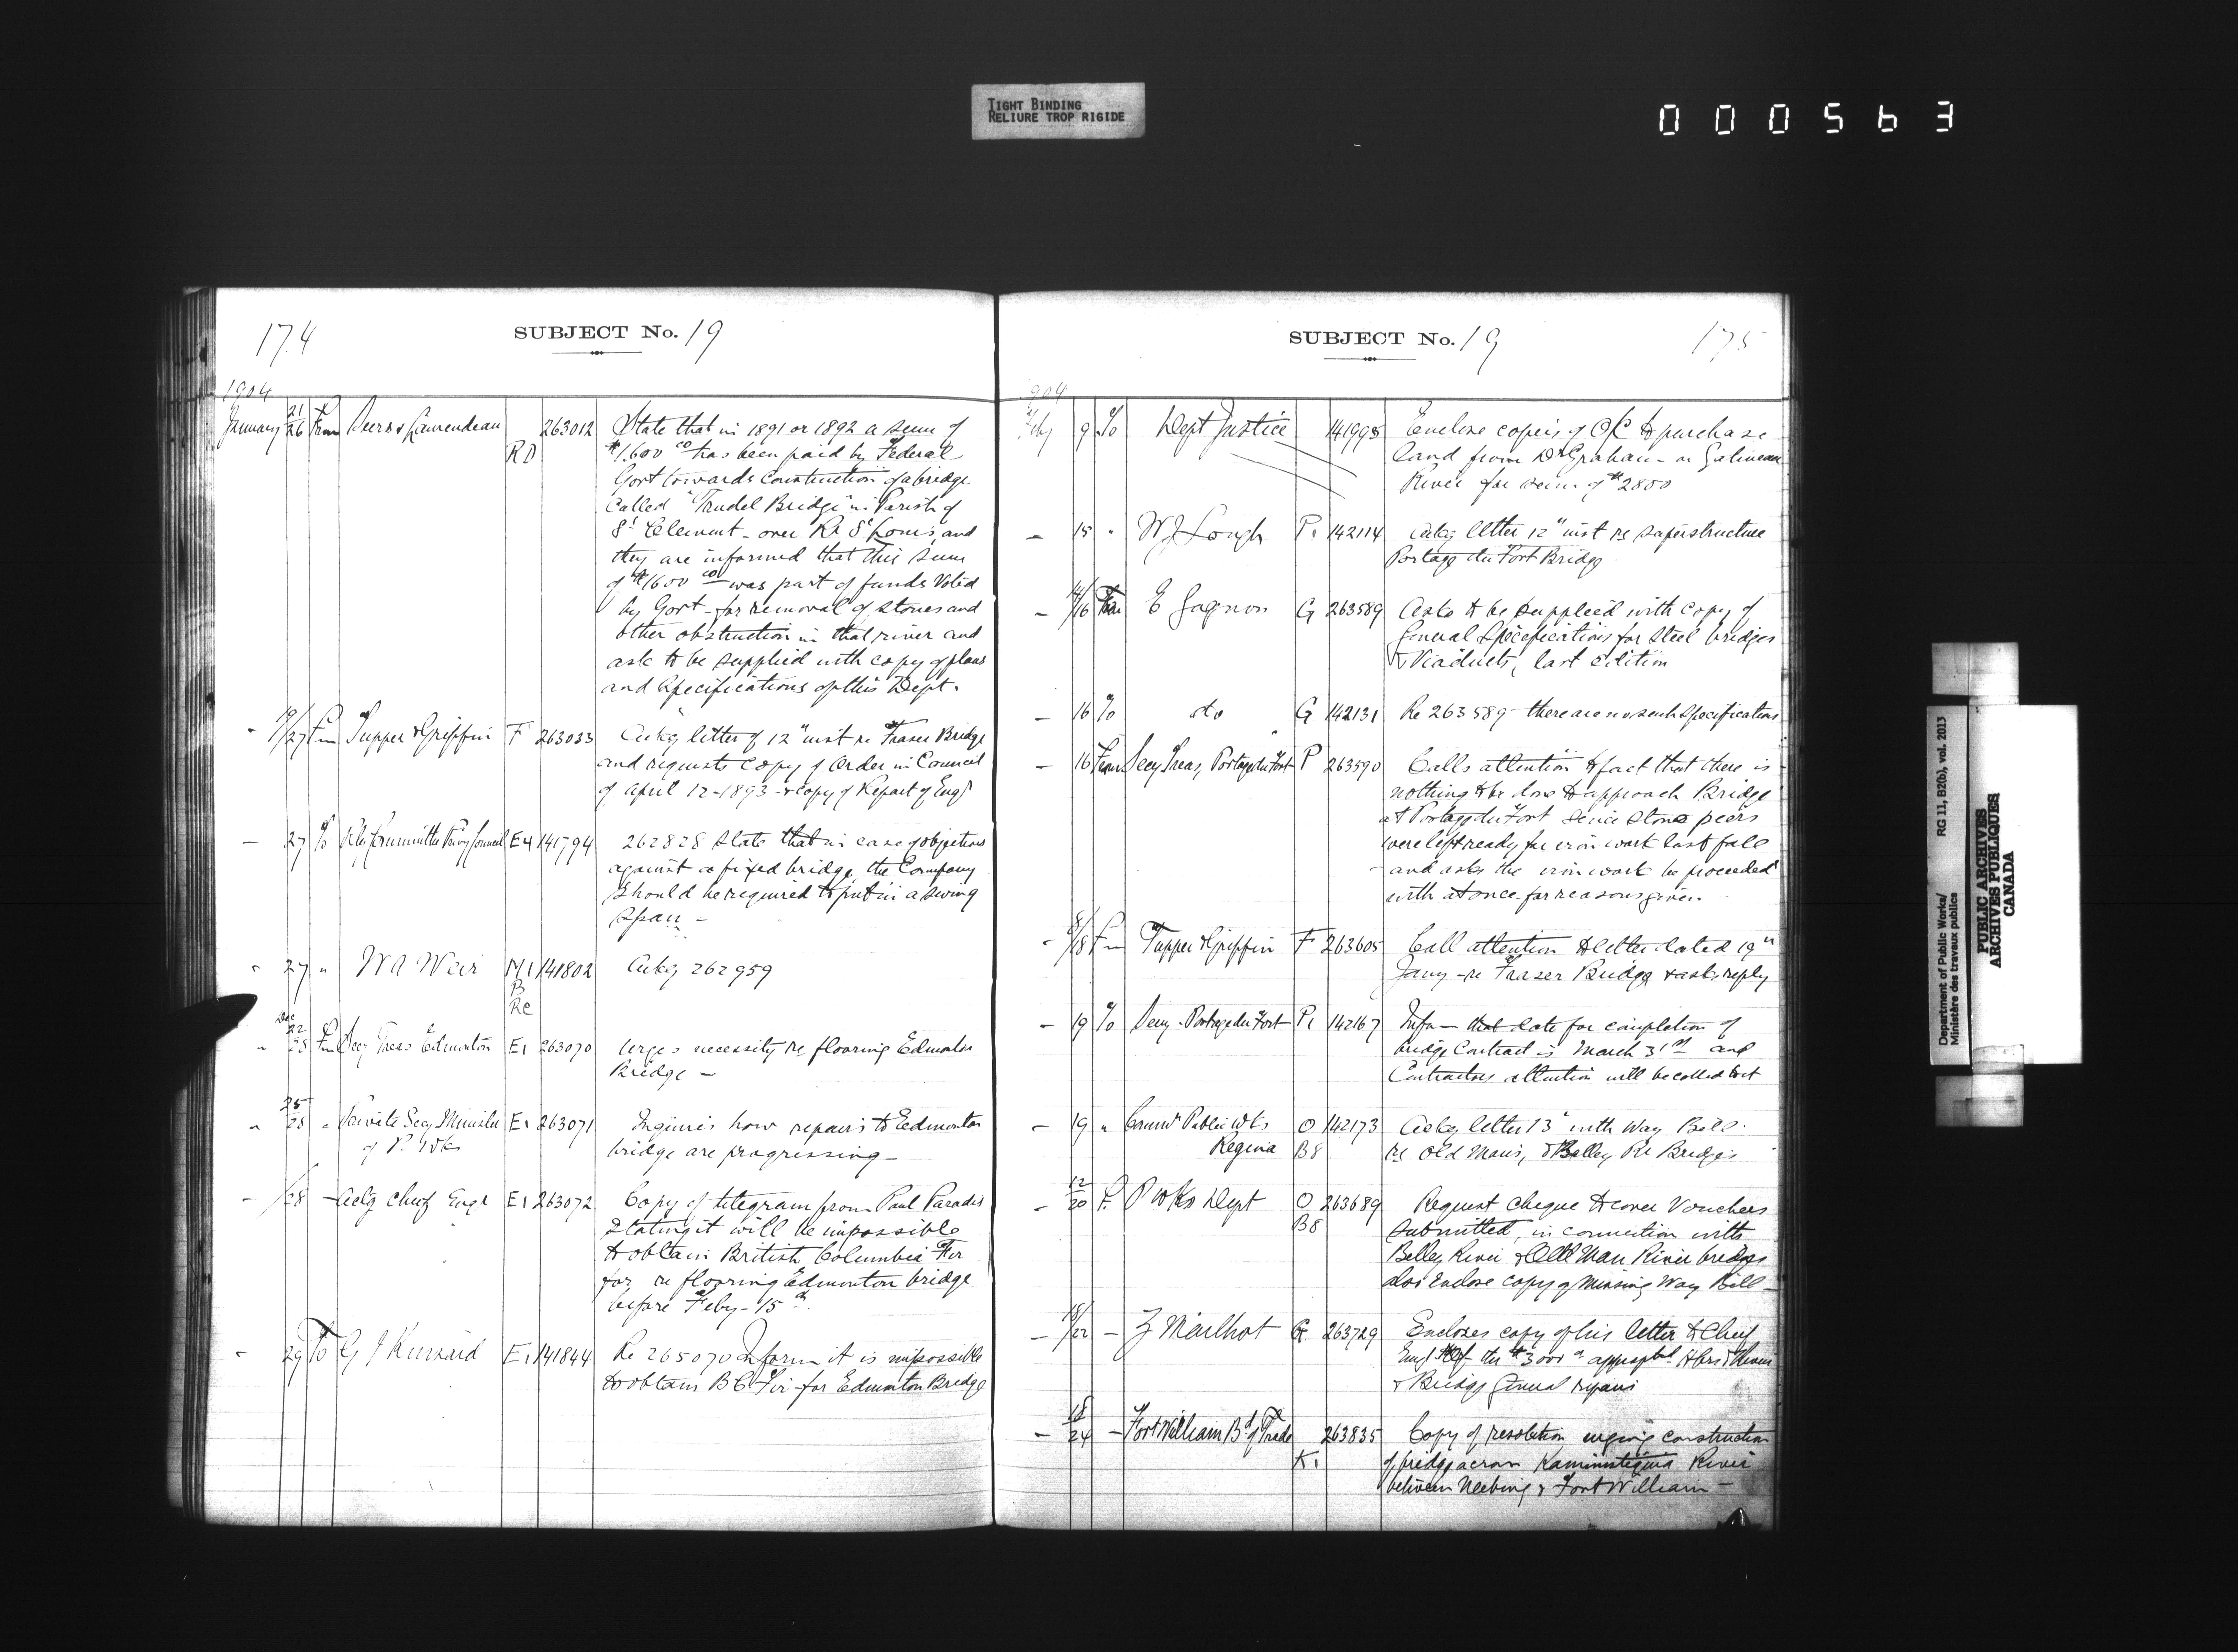 TIGHT BINDING
RELIURE TROP RIGIDE
000563
174
SUBJECT No. 19
1904
January 21/26 From Laurendeau RD 263012 State that in 1891 or 1892 a sum of
$1,600 00 has been paid by Federal
Govt towards construction of a bridge
called "Trudel Bridge" in Parish of
St Clement - over Rr St Louis, and
they are informed that this sum
of $1600 00 was part of funds Voted
by Govt - for removal of stones and
other obstruction in that river and
ask to be supplied with copy of plans
and specifications of this Dept.
- 19/27 Fm Tupper & Griffin F 263033 Ackg letter of 12" inst re Fraser Bridge
and requests copy of Order in Council
of April 12 - 1893 - & copy of Report of Engr
- 27 To Rly Committee Privy Council E4 141794 262828 State that in case of objections
against a fixed bridge, the Company
should be required to put in a swing
span -
" 27 " W A Weir M1 141802 Ackg 262959
B
Re
Dec
" 22/28 Fm Secy Treas Edmonton E1 263070 Urges necessity re flooring Edmonton
Bridge -
" 25/28 " Private Secy Minister E1 263071 Inquires how repairs to Edmonton
of P. Wks bridge are progressing -
- /28 - Actg Chief Engr E1 263072 Copy of telegram from Paul Paradis
stating it will be impossible
to obtain British Columbia Fir
for re flooring Edmonton bridge
before Feby - 15th
" 29 To G J Kinnaird E1 141844 Re 265070 Inform it is impossible
to obtain B C Fir for Edmonton Bridge
SUBJECT No. 19
175
1904
Feby 9 To Dept Justice 141995 Enclose copies of OC to purchase
land from Dr Graham - on Gatineau
River for sum of $2800
- 15 " W J Lough P1 142114 Ackg letter 12" inst re superstructure
Portage du Fort Bridge
- /16 Fm E Gagnon G 263589 Asks to be supplied with copy of
General Specifications for steel bridges
& Viaducts, last edition
- 16 To do G 142131 Re 263589 - there are no such specifications
- 16 From Secy Treas, Portage du Fort P 263590 Calls attention to fact that there is
nothing to be done to approach Bridge
at Portage du Fort since stone piers
were left ready for iron work last fall
- and asks the iron work be proceeded
with at once for reasons given.
- 8/18 Fm Tupper & Griffin F 263605 Call attention to letter dated 19th
Jany - re Fraser Bridge & ask reply
- 19 To Secy - Portage du Fort P1 142167 Inform that date for completion of
bridge Contract is March 31st and
Contractors attention will be called to it
- 19 " Commr Public Wks O 142173 Ackg letter 13" with Way Bill
Regina B8 re Old Mans, & Belley Rr Bridges
- 12/20 F P Wks Dept O 263689 Request cheque to cover Vouchers
B8 submitted, in connection with
Belley River & Old Man River bridges
also Enclose copy of Missing Way Bill -
- 18/22 - Z Mailhot G 263729 Encloses copy of his letter to Chief
Engr the $3000
& Bridge General repairs
- 18/24 - Fort William Bd of Trade 263835 Copy of resolution urging construction
K1 of bridge across Kaministiquia River
between Neebing & Fort William -
Department of Public Works/ RG 11, B2(b), vol. 2013
Ministère des travaux publics
PUBLIC ARCHIVES
ARCHIVES PUBLIQUES
CANADA